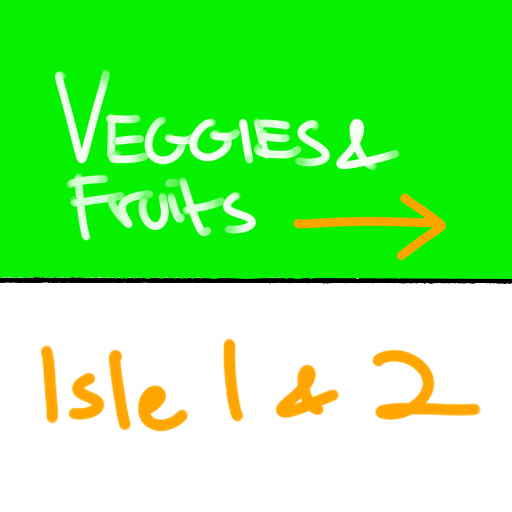 VEGGIES &
Fruits →
Isle 1 & 2